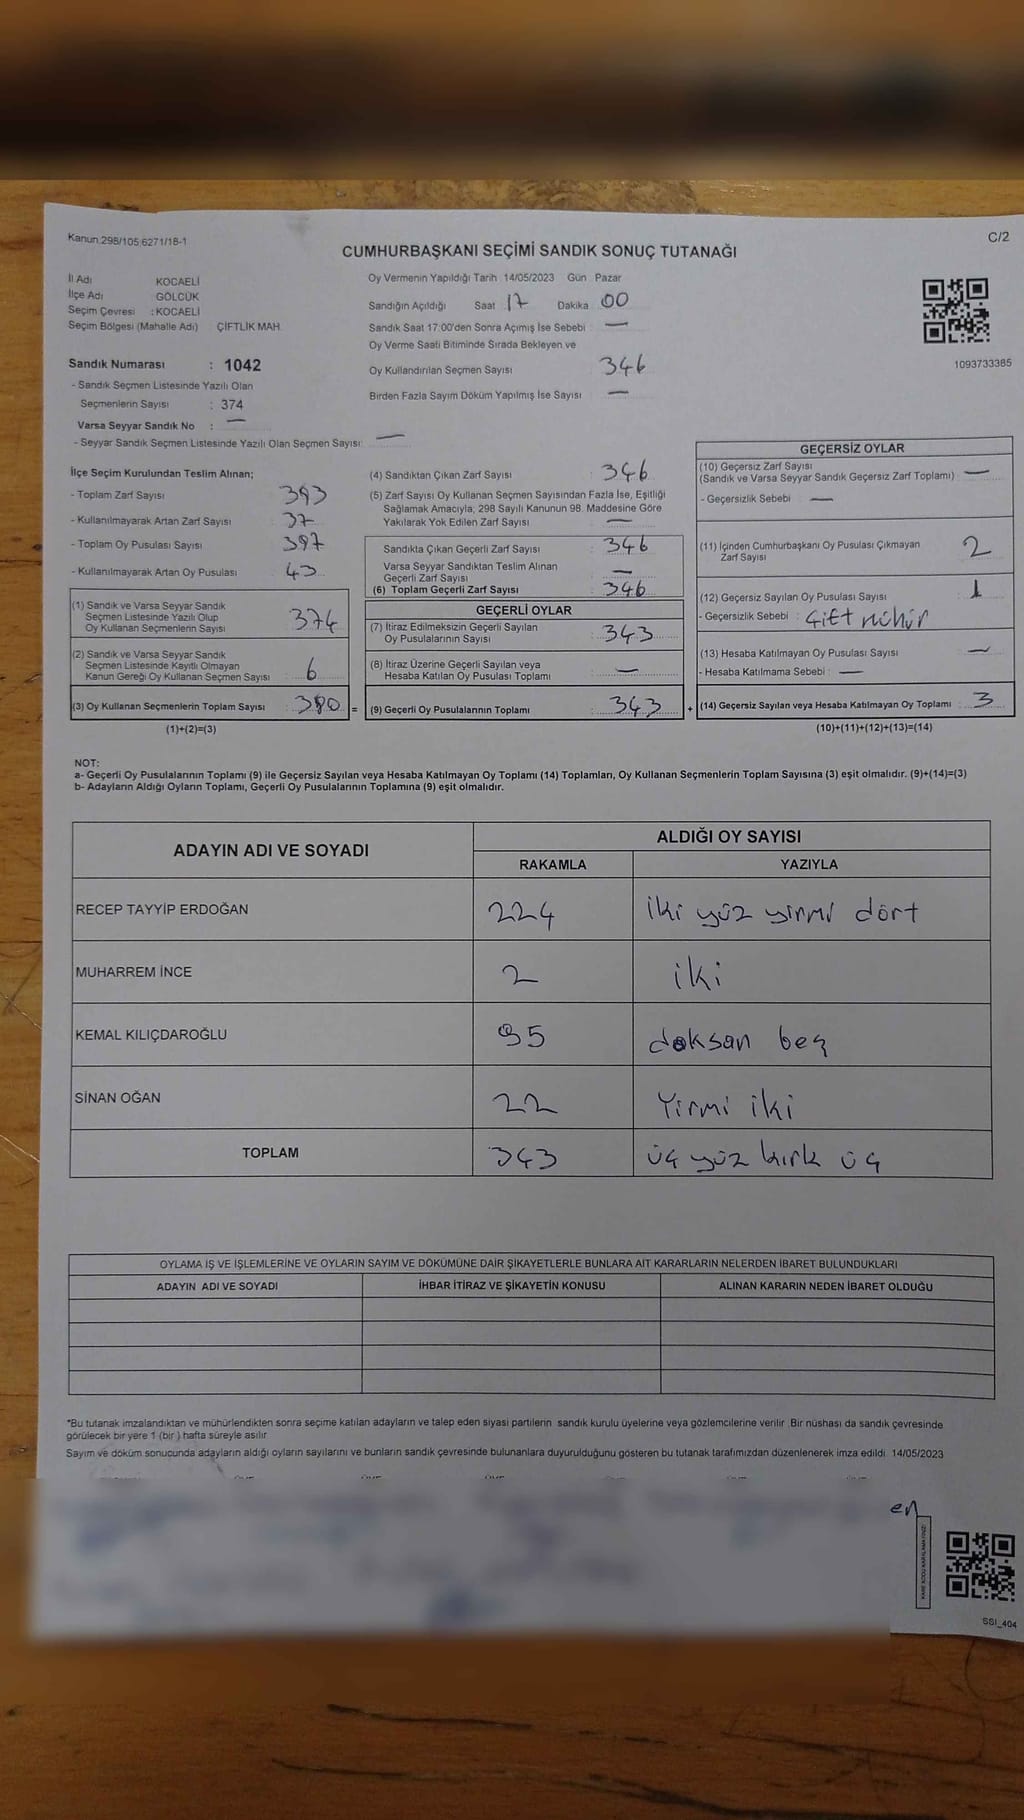 Kanun.298/105,6271/18-1
C/2
CUMHURBAŞKANI SEÇİMİ SANDIK SONUÇ TUTANAĞI
İl Adı KOCAELİ
İlçe Adı GÖLCÜK
Seçim Çevresi : KOCAELİ
Seçim Bölgesi (Mahalle Adı) : ÇİFTLİK MAH.
Sandık Numarası : 1042
- Sandık Seçmen Listesinde Yazılı Olan
Seçmenlerin Sayısı : 374
Varsa Seyyar Sandık No : —
- Seyyar Sandık Seçmen Listesinde Yazılı Olan Seçmen Sayısı: —
Oy Vermenin Yapıldığı Tarih 14/05/2023 Gün Pazar
Sandığın Açıldığı Saat 17 Dakika 00
Sandık Saat 17:00'den Sonra Açımış İse Sebebi : —
Oy Verme Saati Bitiminde Sırada Bekleyen ve
Oy Kullandırılan Seçmen Sayısı 346
Birden Fazla Sayım Döküm Yapılmış İse Sayısı —
1093733385
İlçe Seçim Kurulundan Teslim Alınan;
- Toplam Zarf Sayısı 393
- Kullanılmayarak Artan Zarf Sayısı 37
- Toplam Oy Pusulası Sayısı 397
- Kullanılmayarak Artan Oy Pusulası 43
(1) Sandık ve Varsa Seyyar Sandık
Seçmen Listesinde Yazılı Olup
Oy Kullanan Seçmenlerin Sayısı 374
(2) Sandık ve Varsa Seyyar Sandık
Seçmen Listesinde Kayıtlı Olmayan
Kanun Gereği Oy Kullanan Seçmen Sayısı 6
(3) Oy Kullanan Seçmenlerin Toplam Sayısı : 380 =
(1)+(2)=(3)
(4) Sandıktan Çıkan Zarf Sayısı : 346
(5) Zarf Sayısı Oy Kullanan Seçmen Sayısından Fazla İse, Eşitliği
Sağlamak Amacıyla; 298 Sayılı Kanunun 98. Maddesine Göre
Yakılarak Yok Edilen Zarf Sayısı : —
Sandıkta Çıkan Geçerli Zarf Sayısı : 346
Varsa Seyyar Sandıktan Teslim Alınan
Geçerli Zarf Sayısı —
(6) Toplam Geçerli Zarf Sayısı : 346
GEÇERLİ OYLAR
(7) İtiraz Edilmeksizin Geçerli Sayılan
Oy Pusulalarının Sayısı : 343
(8) İtiraz Üzerine Geçerli Sayılan veya
Hesaba Katılan Oy Pusulası Toplamı : —
(9) Geçerli Oy Pusulalarının Toplamı : 343 +
GEÇERSİZ OYLAR
(10) Geçersiz Zarf Sayısı
(Sandık ve Varsa Seyyar Sandık Geçersiz Zarf Toplamı) : —
- Geçersizlik Sebebi : —
(11) İçinden Cumhurbaşkanı Oy Pusulası Çıkmayan
Zarf Sayısı 2
(12) Geçersiz Sayılan Oy Pusulası Sayısı : 1
- Geçersizlik Sebebi : Çift mühür
(13) Hesaba Katılmayan Oy Pusulası Sayısı : —
- Hesaba Katılmama Sebebi : —
(14) Geçersiz Sayılan veya Hesaba Katılmayan Oy Toplamı : 3
(10)+(11)+(12)+(13)=(14)
NOT:
a- Geçerli Oy Pusulalarının Toplamı (9) ile Geçersiz Sayılan veya Hesaba Katılmayan Oy Toplamı (14) Toplamları, Oy Kullanan Seçmenlerin Toplam Sayısına (3) eşit olmalıdır. (9)+(14)=(3)
b- Adayların Aldığı Oyların Toplamı, Geçerli Oy Pusulalarının Toplamına (9) eşit olmalıdır.
ADAYIN ADI VE SOYADI ALDIĞI OY SAYISI
RAKAMLA YAZIYLA
RECEP TAYYİP ERDOĞAN 224 iki yüz yirmi dört
MUHARREM İNCE 2 iki
KEMAL KILIÇDAROĞLU 95 doksan beş
SİNAN OĞAN 22 Yirmi iki
TOPLAM 343 üç yüz kırk üç
OYLAMA İŞ VE İŞLEMLERİNE VE OYLARIN SAYIM VE DÖKÜMÜNE DAİR ŞİKAYETLERLE BUNLARA AİT KARARLARIN NELERDEN İBARET BULUNDUKLARI
ADAYIN ADI VE SOYADI İHBAR İTİRAZ VE ŞİKAYETİN KONUSU ALINAN KARARIN NEDEN İBARET OLDUĞU
*Bu tutanak imzalandıktan ve mühürlendikten sonra seçime katılan adayların ve talep eden siyasi partilerin sandık kurulu üyelerine veya gözlemcilerine verilir. Bir nüshası da sandık çevresinde
görülecek bir yere 1 (bir ) hafta süreyle asılır
Sayım ve döküm sonucunda adayların aldığı oyların sayılarını ve bunların sandık çevresinde bulunanlara duyurulduğunu gösteren bu tutanak tarafımızdan düzenlenerek imza edildi. 14/05/2023
en
SSI_404